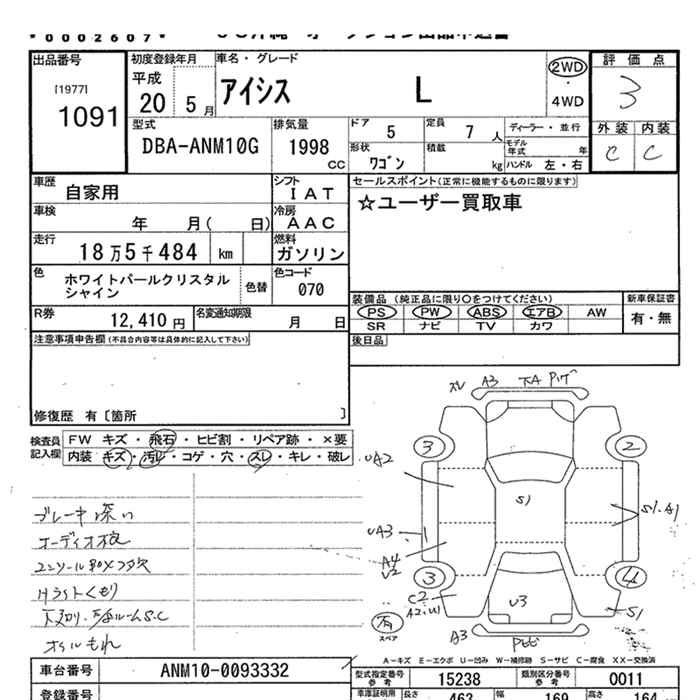 *0002607*
出品番号
[1977]
1091
初度登録年月
平成
20 5月
車名・グレード
アイシス L
2WD
・
4WD
評価点
3
外装 内装
C C
型式
DBA-ANM10G
排気量
1998
CC
ドア 5 定員 7 人
ディーラー・並行
形状 ワゴン 積載 kg
モデル年式 年
ハンドル 左・右
車歴 自家用
シフト
IAT
車検 年 月( 日)
冷房
AAC
走行 18万5千484 km
燃料
ガソリン
色 ホワイトパールクリスタル
シャイン
色替
色コード
070
R券 12,410 円
名変通知期限 月 日
セールスポイント(正常に機能するものに限ります)
☆ユーザー買取車
装備品 (純正品に限り○をつけてください)
PS PW ABS エアB AW
SR ナビ TV カワ
新車保証書
有・無
後日品
注意事項申告欄(不具合内容等は具体的に記入して下さい)
修復歴 有[箇所 ]
検査員
記入欄
FW キズ・飛石・ヒビ割・リペア跡・×要
内装 キズ・汚レ・コゲ・穴・スレ・キレ・破レ
ブレーキ深い
オーディオ
ヘッドライトくもり
オイルもれ
A3
3
2
UA2
S1
S1.A1
UA3
A4
U2
3
4
C2
A2.W
U3
S1
有
スペア
A3
A-キズ E-エクボ U-凹み W-補修跡 S-サビ C-腐食 XX-交換済
車台番号 ANM10-0093332
型式指定番号
参考
15238
類別区分番号
参考
0011
登録番号
車庫証明用
長さ 463 幅 169 高さ 164